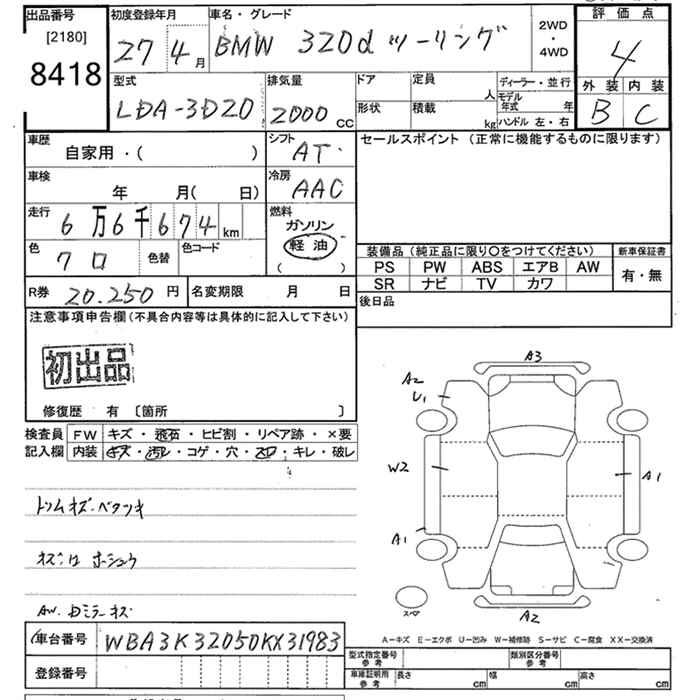 出品番号 初度登録年月 車名・グレード 2WD・4WD 評価点
[2180] 27 4月 BMW 320d ツーリング 4
8418
型式 排気量 ドア 定員 人 ディーラー・並行 外装 内装
LDA-3D20 2000CC 形状 積載 kg モデル年式 年 B C
ハンドル 左・右
車歴 シフト セールスポイント (正常に機能するものに限ります)
自家用・( ) AT
車検 冷房
年 月( 日) AAC
走行 燃料
6万6千674km ガソリン
軽油
色 色替 色コード ( )
クロ
装備品 (純正品に限り○をつけてください) 新車保証書
PS PW ABS エアB AW 有・無
SR ナビ TV カワ
R券 20.250円 名変期限 月 日 後日品
注意事項申告欄 (不具合内容等は具体的に記入して下さい)
初出品
修復歴 有 〔箇所 〕
検査員 FW キズ・飛石・ヒビ割・リペア跡・×要
記入欄 内装 キズ・汚レ・コゲ・穴・スレ・キレ・破レ
トリムキズ・ベタツキ
キズ:ロ ホシュウ
AW. Dミラーキズ
A3
A2
U1
W2
A1
A1
スペア
A2
A-キズ E-エクボ U-凹み W-補修跡 S-サビ C-腐食 XX-交換済
車台番号 WBA3K32050KX31983
型式指定番号 参考 類別区分番号 参考
登録番号
車庫証明用 参考 長さ cm 幅 cm 高さ cm